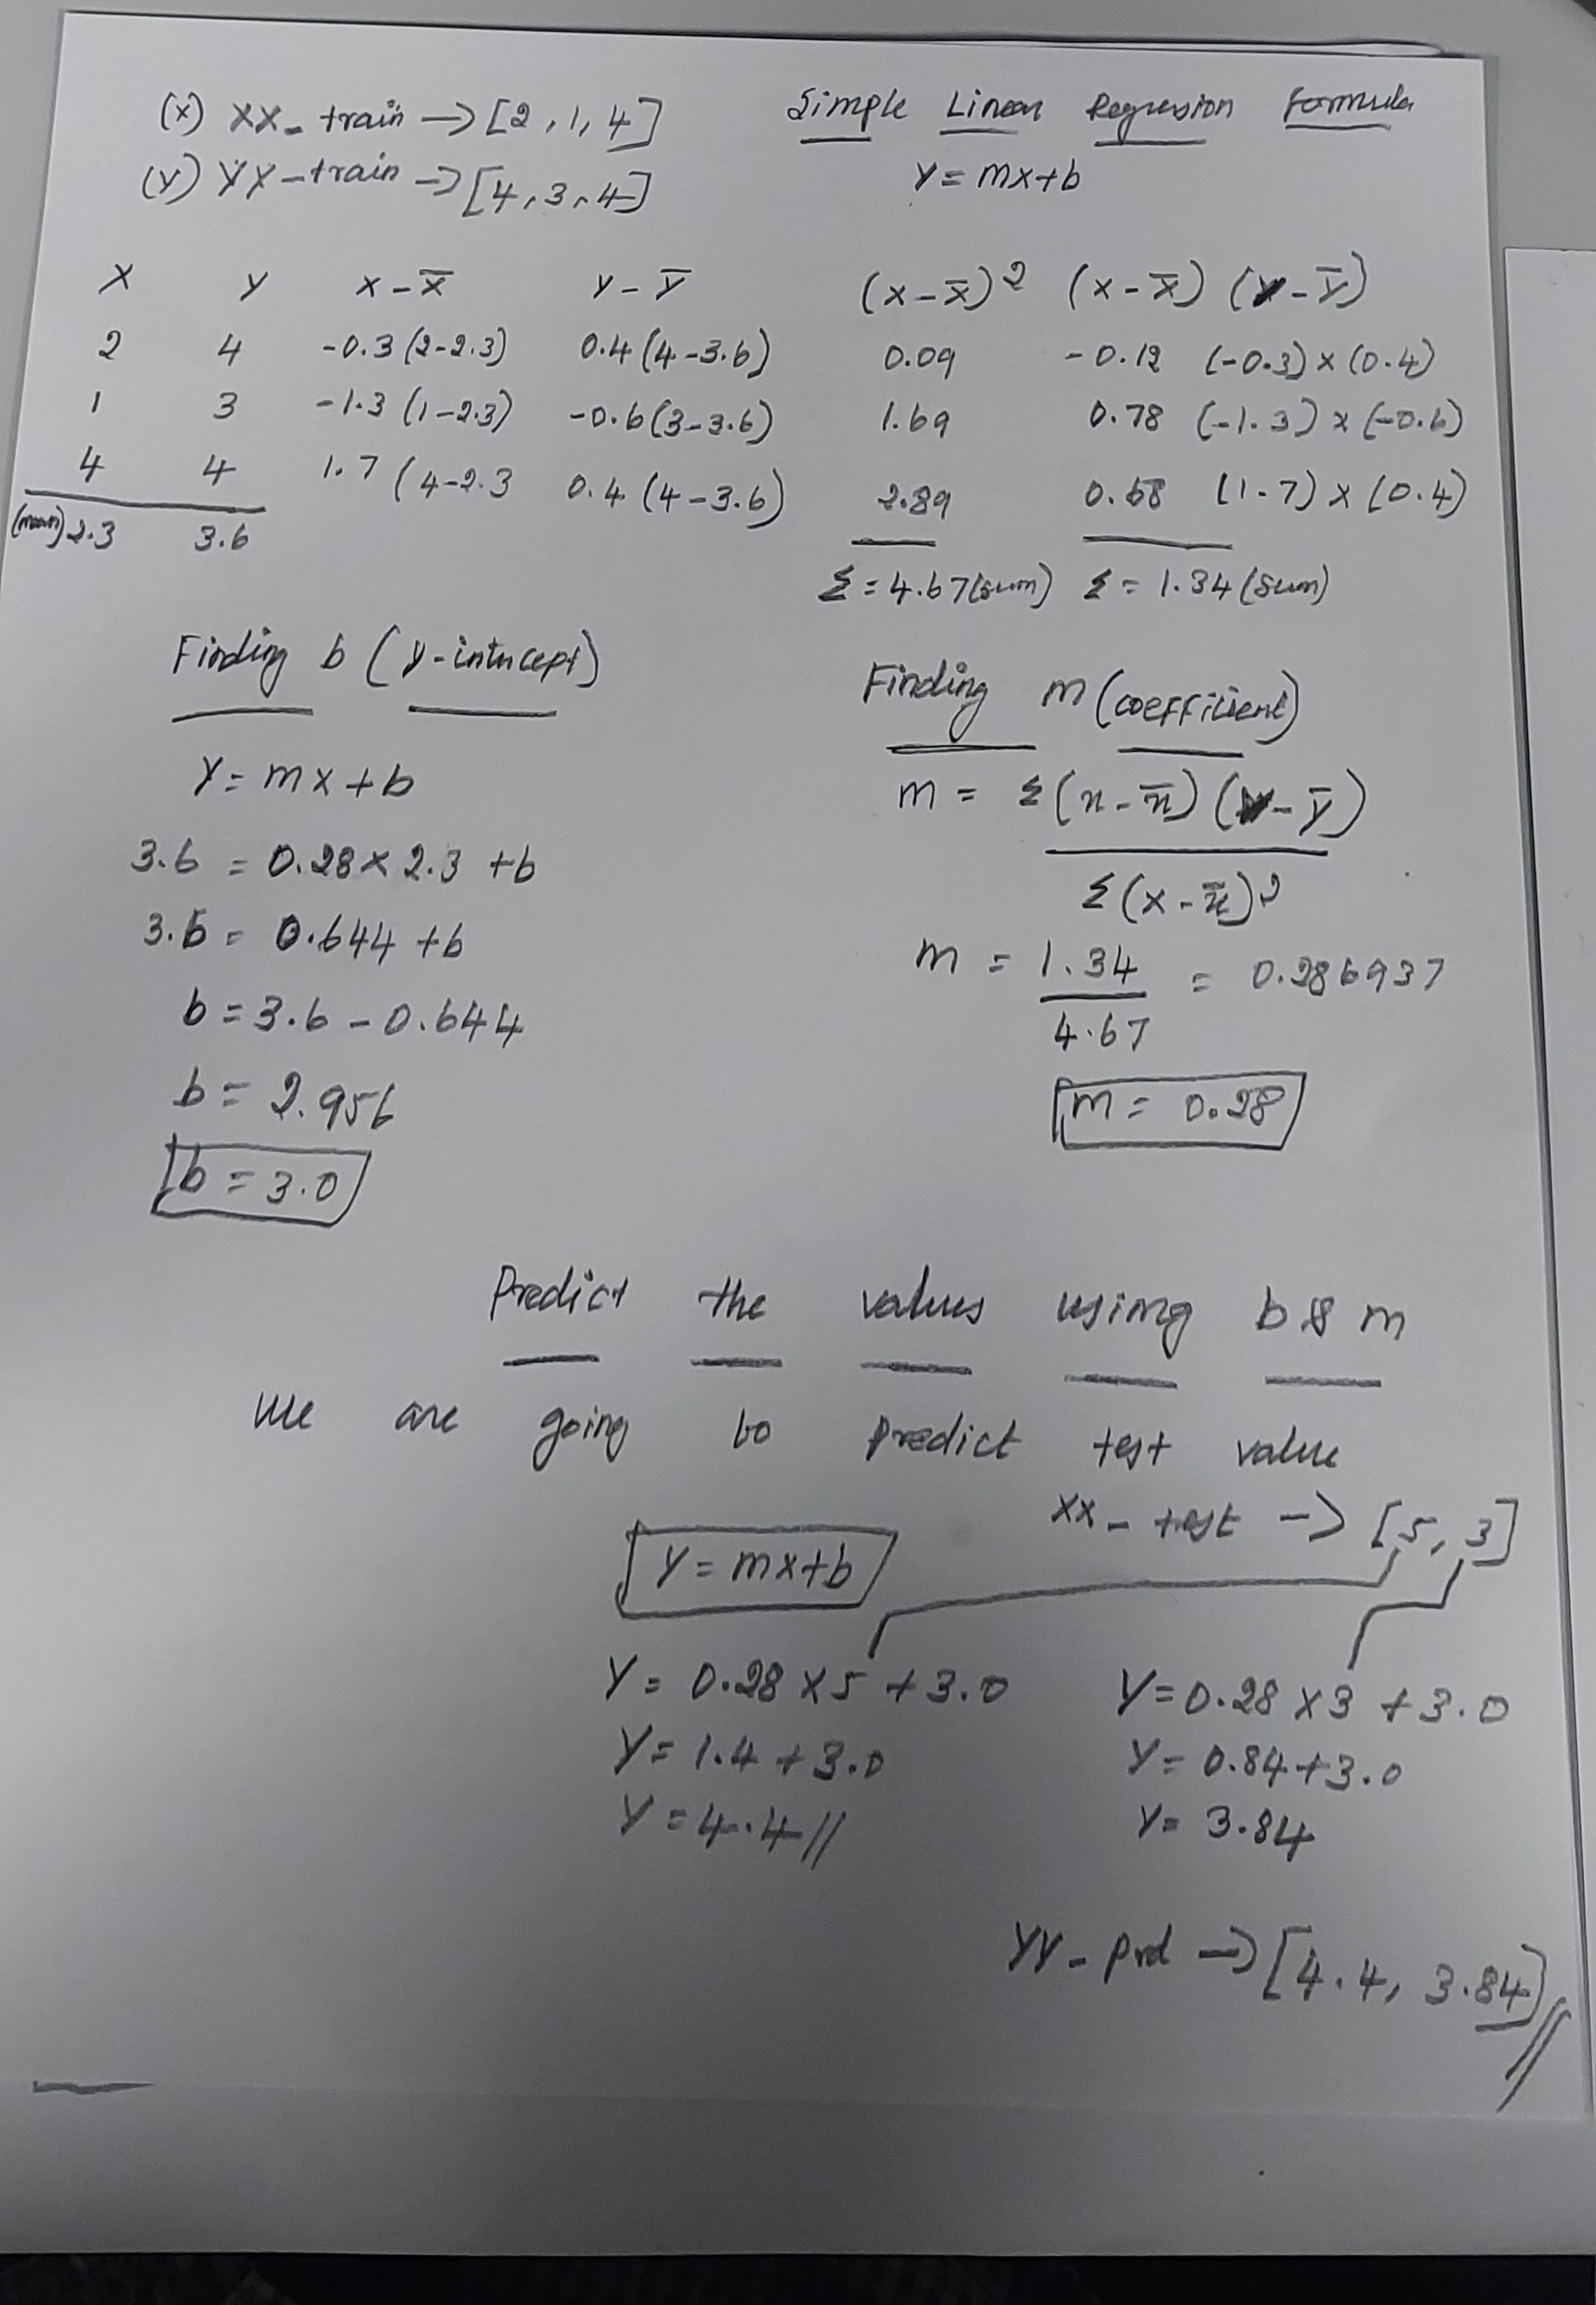 (x) XX_train → [2, 1, 4]
(Y) YY-train → [4, 3, 4]
Simple Linear Regression Formula
Y = mx+b
X Y x-x̅ Y-Y̅ (x-x̅)2 (x-x̅) (Y-Y̅)
2 4 -0.3 (2-2.3) 0.4 (4-3.6) 0.09 -0.12 (-0.3) x (0.4)
1 3 -1.3 (1-2.3) -0.6 (3-3.6) 1.69 0.78 (-1.3) x (-0.6)
4 4 1.7 (4-2.3 0.4 (4-3.6) 2.89 0.68 (1.7) x (0.4)
(mean) 2.3 3.6
Σ = 4.67 (sum) Σ = 1.34 (Sum)
Finding b (y-intercept)
Y = mx+b
3.6 = 0.28 x 2.3 +b
3.6 = 0.644 +b
b = 3.6 - 0.644
b = 2.956
b = 3.0
Finding m (coefficient)
m = Σ(x-x̅) (Y-Y̅)
Σ(x-x̅)2
m = 1.34 = 0.286937
4.67
m = 0.28
Predict the values using b & m
We are going to predict test value
XX_test -> [5, 3]
Y = mx+b
Y = 0.28 x 5 + 3.0
Y = 1.4 + 3.0
Y = 4.4 //
Y = 0.28 x 3 + 3.0
Y = 0.84 + 3.0
Y = 3.84
YY_prd → [4.4, 3.84] //